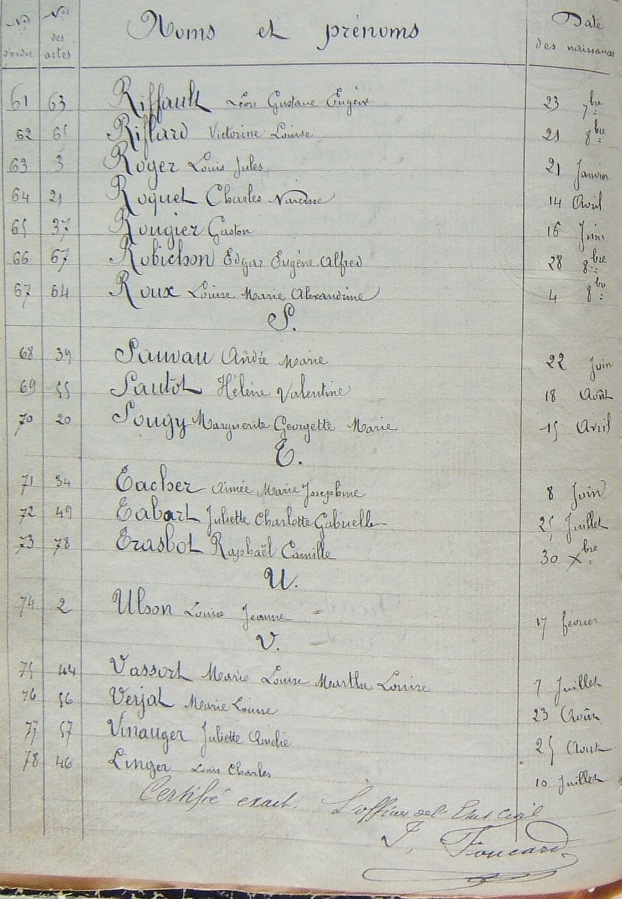 Nos d'ordre Nos des actes Noms et prénoms Date des naissances
61 63 Riffault Léon Gustave Eugène 23 7bre
62 65 Riflard Victorine Louise 21 8bre
63 3 Roger Louis Jules 21 Janvier
64 21 Roquet Charles Narcisse 14 Avril
65 37 Rougier Gaston 16 Juin
66 67 Robichon Edgar Eugène Alfred 28 8bre
67 64 Roux Louise Marie Alexandrine 4 8bre
S.
68 39 Sauvau Andrée Marie 22 Juin
69 55 Sautot Hélène Valentine 18 Août
70 20 Sougy Marguerite Georgette Marie 15 Avril
T.
71 34 Tacher Aimée Marie Josephine 8 Juin
72 49 Tabart Juliette Charlotte Gabrielle 25 Juillet
73 78 Trasbot Raphaël Camille 30 Xbre
U.
74 2 Ulson Louise Jeanne 17 février
V.
75 44 Vassort Marie Louise Martha Louise 7 Juillet
76 56 Verjat Marie Louise 23 Août
77 57 Vinauger Juliette Amélie 25 Août
78 46 Linger Louis Charles 10 Juillet
Certifié exact. L'officier de l'Etat Civil
J. Foucard